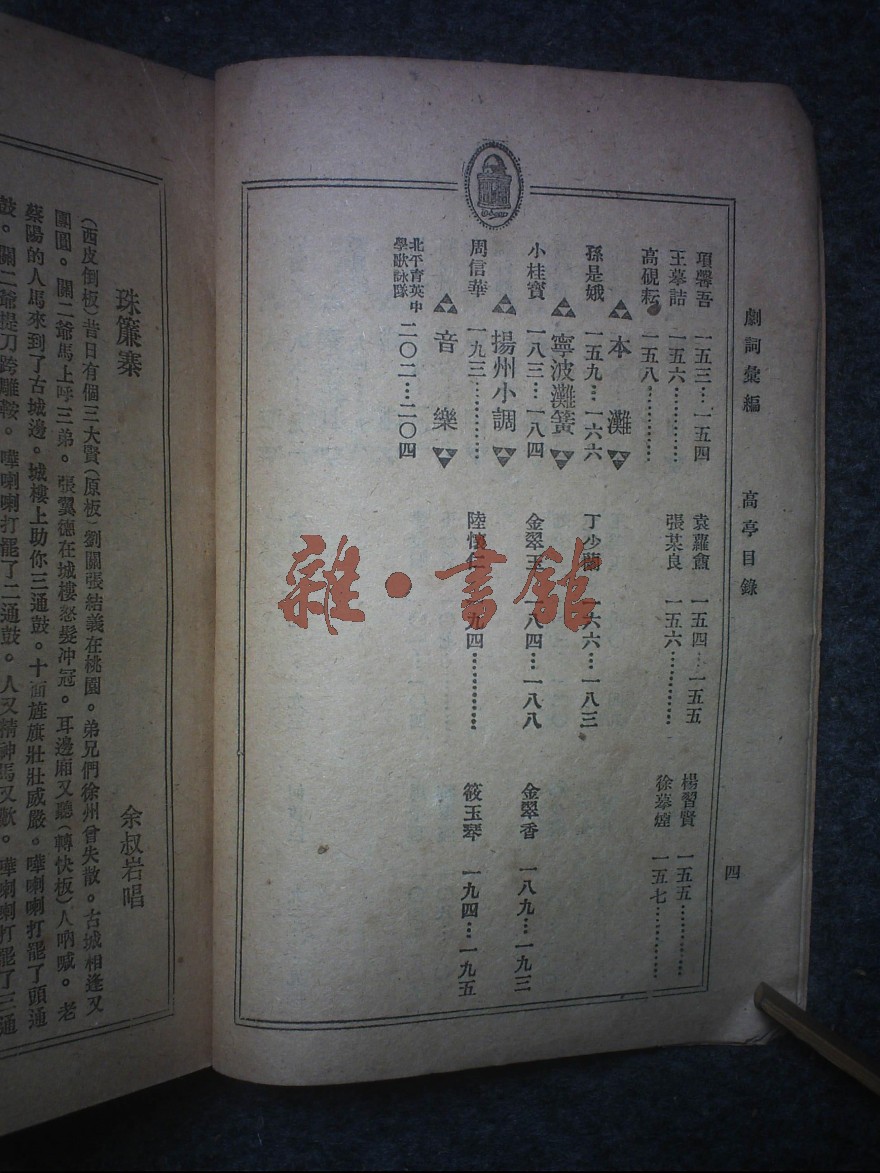 劇詞彙編　高亭目錄　四
項馨吾　一五三…一五四　袁蘿盦　一五四…一五五　楊習賢　一五五…………
王摹詰　一五六…………　張某良　一五六…………　徐摹煙　一五七…………
高硯耘　一五八…………
本灘
孫是娥　一五九…一六六　丁少蘭　一六六…一八三
寧波灘簧
小桂寳　一八三…一八四　金翠玉　一八四…一八八　金翠香　一八九…一九三
揚州小調
周信華　一九三…………　陸懷仁　一九四…………　筱玉琴　一九四…一九五
音樂
北平育英中學歌詠隊　二〇二…二〇四
珠簾寨　余叔岩唱
(西皮倒板)昔日有個三大賢(原板)劉關張結義在桃園。弟兄們徐州曾失散。古城相逢又
團圓。關二爺馬上呼三弟。張翼德在城樓怒髮冲冠。耳邊廂又聽(轉快板)人吶喊。老
蔡陽的人馬來到了古城邊。城樓上助你三通鼓。十面旌旗壯壯威嚴。嘩喇喇打罷了頭通
鼓。關二爺提刀跨雕鞍。嘩喇喇打罷了二通鼓。人又精神馬又歡。嘩喇喇打罷了三通
雜·書館